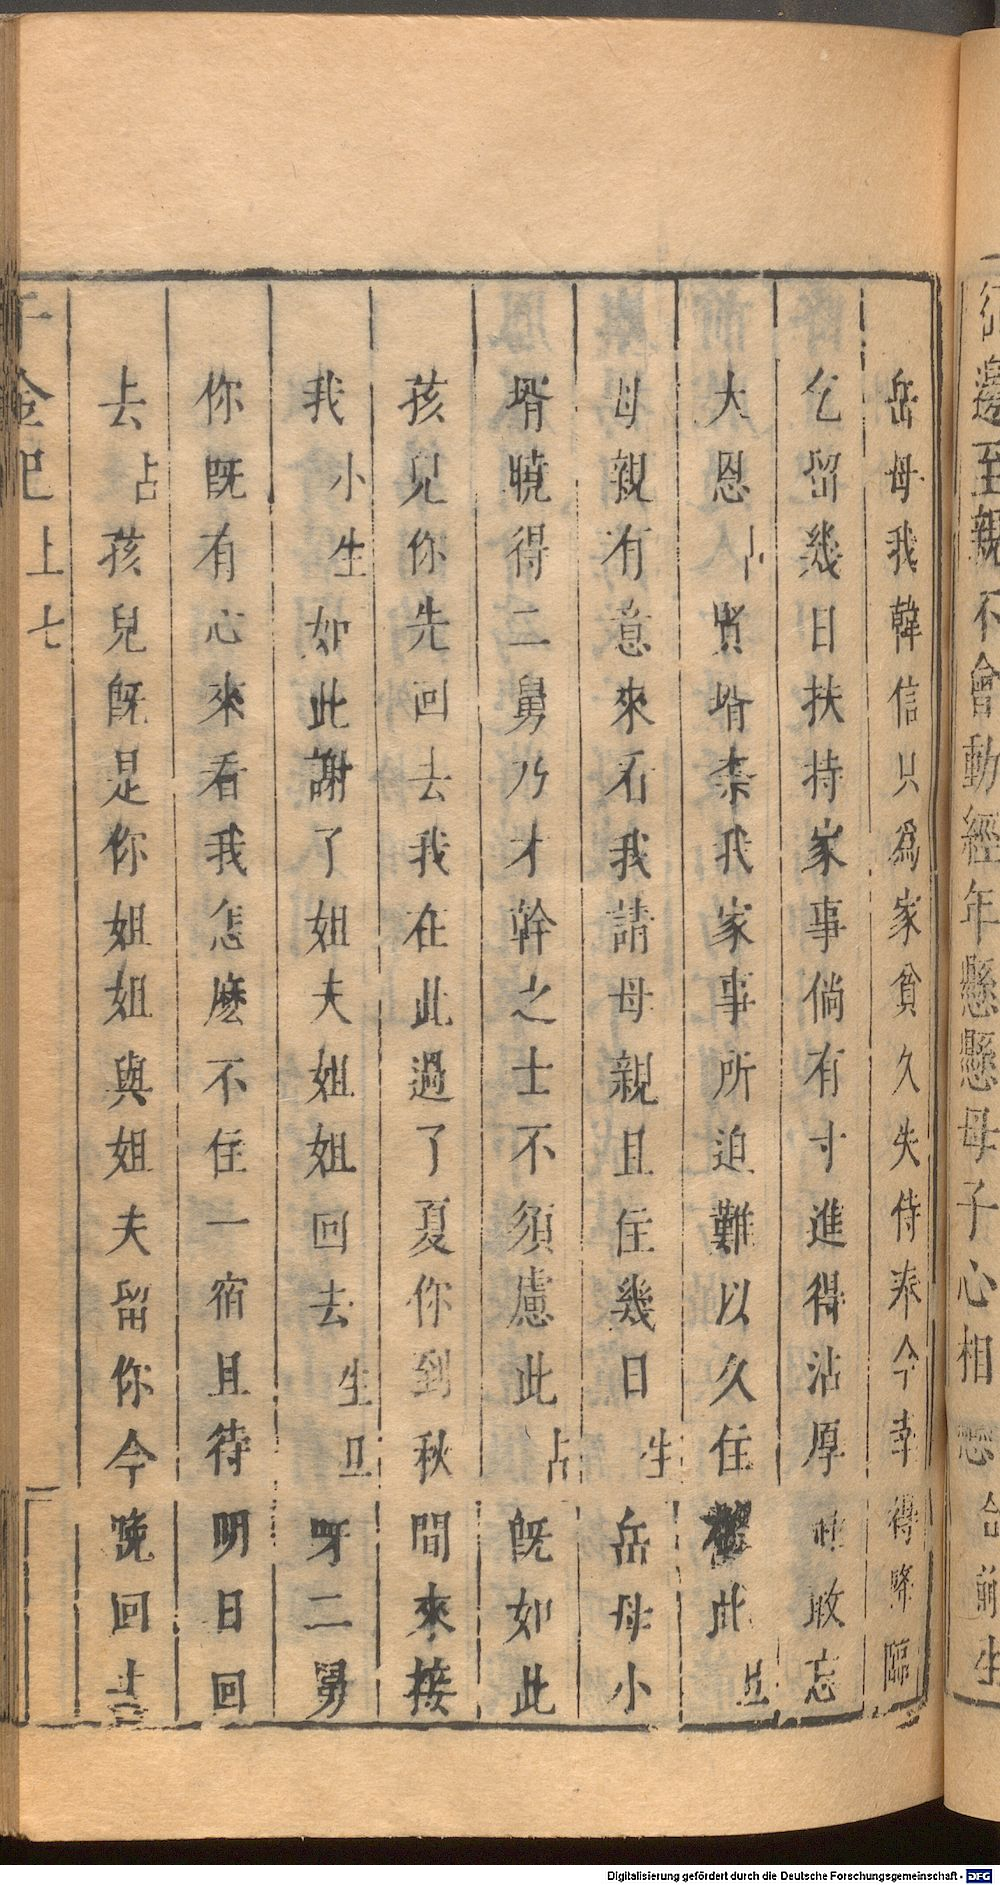 邊至親不會動經年懸懸母子心相戀
岳母我韓信只爲家貧久失侍奉今幸得降臨
乞畱幾日扶持家事倘有寸進得沾厚 敢忘
大恩占賢壻柰我家事所迫難以久住 此旦
母親有意來看我請母親且住幾日生岳母小
壻曉得二舅乃才幹之士不須慮此占旣如此
孩兒你先回去我在此過了夏你到秋間來接
我小生如此謝了姐夫姐姐回去生旦呀二舅
你旣有心來看我怎麽不住一宿且待明日回
去占孩兒旣是你姐姐與姐夫畱你今晚回
千金記上七
Digitalisierung gefördert durch die Deutsche Forschungsgemeinschaft - DFG